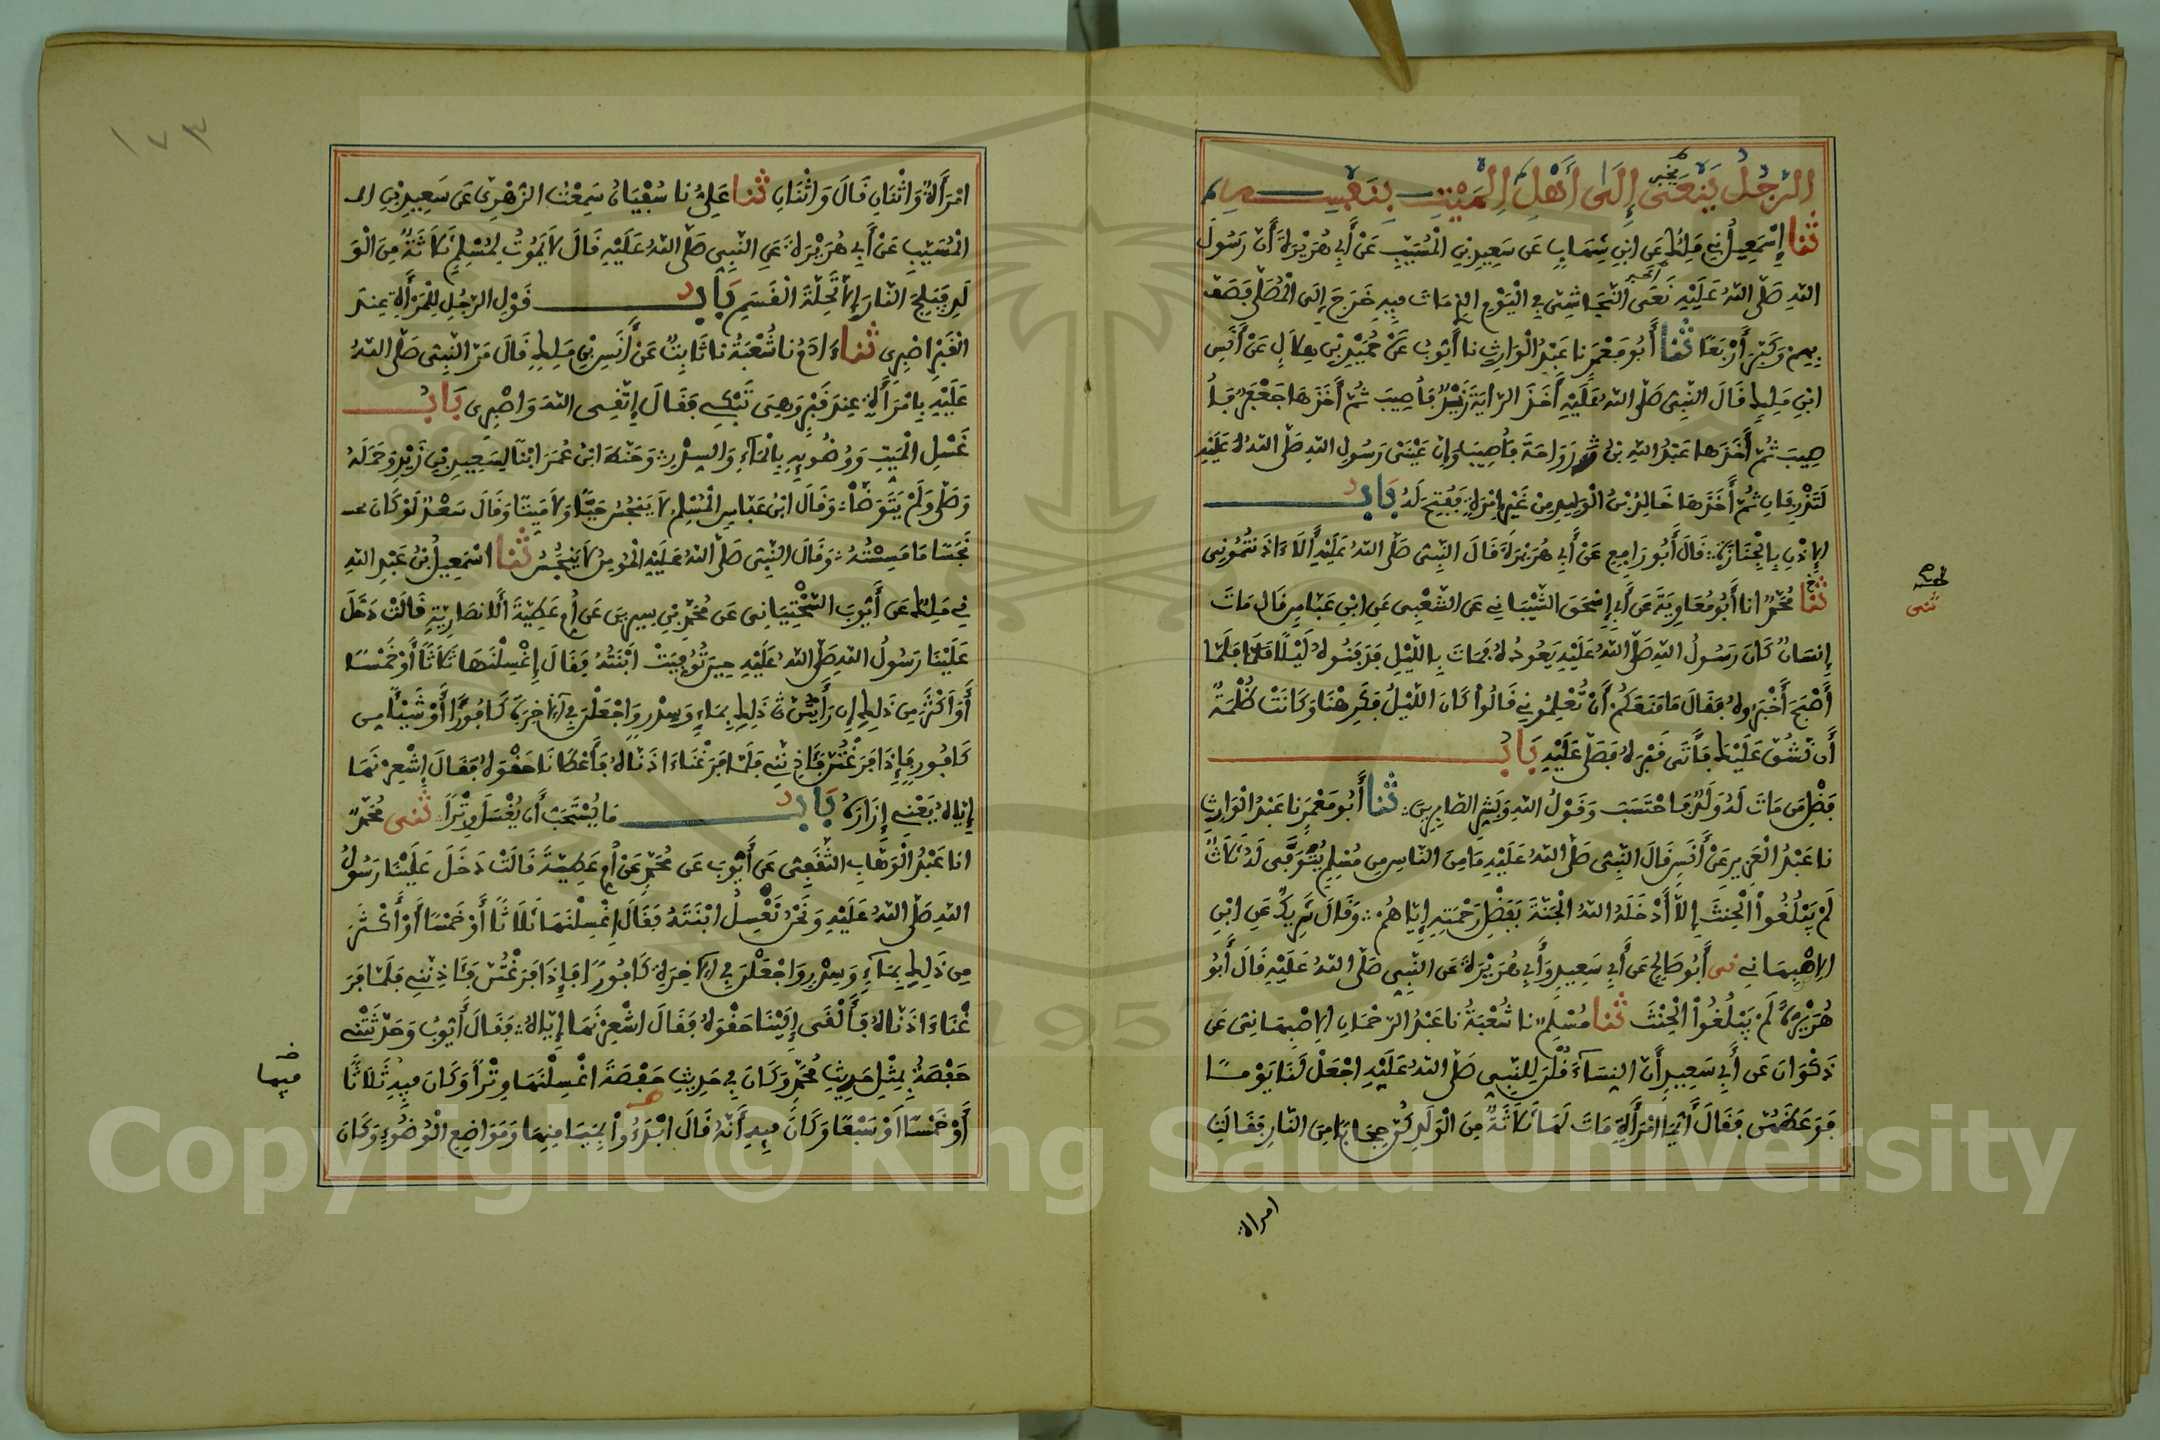 الرَّجُلُ يَنْعَى إِلَى أَهْلِ الْمَيِّتِ بِنَفْسِهِ
يخبر
ثنا إِسْمَعِيلُ ني مَلِكٌ عَنِ ابْنِ شِهَابٍ عَن سَعِيدِ بْنِ الْمُسَيِّبِ عَنْ أَبِي هُرَيْرَةَ أَنَّ رَسُولَ
اللهِ صَلَّى اللهُ عَلَيْهِ نَعَى النَّجَاشِيَّ فِي الْيَوْمِ الذِي مَاتَ فِيهِ خَرَجَ إِلَى الْمُصَلَّى فَصَفَّ
بِهِمْ وَكَبَّرَ أَرْبَعًا ثنا أَبُو مَعْمَرٍ نا عَبْدُ الْوَارِثِ نا أَيُّوبُ عَنْ حُمَيْدِ بْنِ هِلَالٍ عَنْ أَنَسِ
ابْنِ مَلِكٍ قَالَ النَّبِيُّ صَلَّى اللهُ عَلَيْهِ أَخَذَ الرَّايَةَ زَيْدٌ فَأُصِيبَ ثُمَّ أَخَذَهَا جَعْفَرٌ فَأُ
صِيبَ ثُمَّ أَخَذَهَا عَبْدُ اللهِ بْنُ رَوَاحَةَ فَأُصِيبَ وَإِنَّ عَيْنَيْ رَسُولِ اللهِ صَلَّى اللهُ عَلَيْهِ
لَتَذْرِفَانِ ثُمَّ أَخَذَهَا خَالِدُ بْنُ الْوَلِيدِ مِنْ غَيْرِ إِمْرَةٍ فَفُتِحَ لَهُ بَابُ
الإِذْنِ بِالْجَنَازَةِ وَقَالَ أَبُو رَافِعٍ عَنْ أَبِي هُرَيْرَةَ قَالَ النَّبِيُّ صَلَّى اللهُ عَلَيْهِ أَلَا ءَاذَنْتُمُونِي
ثنا مُحَمَّدٌ انا أَبُو مُعَاوِيَةَ عَن أَبِي إِسْحَقَ الشَّيْبَانِي عَنِ الشَّعْبِي عَنِ ابْنِ عَبَّاسٍ قَالَ مَاتَ
ثني
إِنسَانٌ كَانَ رَسُولُ اللهِ صَلَّى اللهُ عَلَيْهِ يَعُودُهُ فَمَاتَ بِاللَّيْلِ فَدَفَنُوهُ لَيْلًا فَلَمَّا
أَصْبَحَ أَخْبَرُوهُ فَقَالَ مَا مَنَعَكُمْ أَنْ تُعْلِمُونِي قَالُوا كَانَ اللَّيْلُ فَكَرِهْنَا وَكَانَتْ ظُلْمَةٌ
أَن نَّشُقَّ عَلَيْكَ فَأَتَى قَبْرَهُ فَصَلَّى عَلَيْهِ بَابُ
فَضْلِ مَن مَاتَ لَهُ وَلَدٌ فَاحْتَسَبَ وَقَوْلُ اللهِ وَبَشِّرِ الصَّابِرِينَ ثنا أَبُو مَعْمَرٍ نا عَبْدُ الْوَارِثِ
نا عَبْدُ الْعَزِيزِ عَنْ أَنَسٍ قَالَ النَّبِيُّ صَلَّى اللهُ عَلَيْهِ مَا مِنَ النَّاسِ مِن مُسْلِمٍ يُتَوَفَّى لَهُ ثَلَاثٌ
لَمْ يَبْلُغُوا الْحِنْثَ إِلَّا أَدْخَلَهُ اللهُ الْجَنَّةَ بِفَضْلِ رَحْمَتِهِ إِيَّاهُمْ وَقَالَ شَرِيكٌ عَنِ ابْنِ
الإِصْبِهَانِي ني أَبُو صَالِحٍ عَن أَبِي سَعِيدٍ وَأَبِي هُرَيْرَةَ عَنِ النَّبِيِّ صَلَّى اللهُ عَلَيْهِ قَالَ أَبُو
هُرَيْرَةَ لَمْ يَبْلُغُوا الْحِنْثَ ثنا مُسْلِمٌ نا شُعْبَةُ نا عَبْدُ الرَّحْمَانِ الإِصْبِهَانِي عَن
ذَكْوَانَ عَن أَبِي سَعِيدٍ أَنَّ النِّسَاءَ قُلْنَ لِلنَّبِيِّ صَلَّى اللهُ عَلَيْهِ اجْعَلْ لَنَا يَوْمًا
فَوَعَظَهُنَّ فَقَالَ أَيُّمَا امْرَأَةٍ مَاتَ لَهَا ثَلَاثَةٌ مِنَ الْوَلَدِ كُنَّ حِجَابًا مِنَ النَّارِ فَقَالَتِ
امراة
١٧٣
امْرَأَةٌ وَاثْنَانِ قَالَ وَاثْنَانِ ثنا عَلِيٌّ نا سُفْيَانُ سَمِعْتُ الزُّهْرِيَّ عَن سَعِيدِ بْنِ ال
الْمُسَيِّبِ عَنْ أَبِي هُرَيْرَةَ عَنِ النَّبِيِّ صَلَّى اللهُ عَلَيْهِ قَالَ لَا يَمُوتُ لِمُسْلِمٍ ثَلَاثَةٌ مِنَ الْوَ
لَدِ فَيَلِجَ النَّارَ إِلَّا تَحِلَّةَ الْقَسَمِ بَابُ قَوْلِ الرَّجُلِ لِلْمَرْأَةِ عِندَ
الْقَبْرِ اصْبِرِي ثنا ءَادَمُ نا شُعْبَةُ نا ثَابِتٌ عَنْ أَنَسِ بْنِ مَلِكٍ قَالَ مَرَّ النَّبِيُّ صَلَّى اللهُ
عَلَيْهِ بِامْرَأَةٍ عِندَ قَبْرٍ وَهِيَ تَبْكِي فَقَالَ اتَّقِي اللهَ وَاصْبِرِي بَابُ
غَسْلِ الْمَيِّتِ وَوُضُوئِهِ بِالْمَاءِ وَالسِّدْرِ وَحَنَّطَ ابْنُ عُمَرَ ابْنًا لِسَعِيدِ بْنِ زَيْدٍ وَحَمَلَهُ
وَصَلَّى وَلَمْ يَتَوَضَّأْ وَقَالَ ابْنُ عَبَّاسٍ الْمُسْلِمُ لَا يَنجُسُ حَيًّا وَلَا مَيِّتًا وَقَالَ سَعْدٌ لَوْ كَانَ
نَجَسًا مَا مَسِسْتُهُ وَقَالَ النَّبِيُّ صَلَّى اللهُ عَلَيْهِ الْمُومِنُ لَا يَنْجُسُ ثنا اسْمَعِيلُ بْنُ عَبْدِ اللهِ
ني مَلِكٌ عَن أَيُّوبَ السَّخْتِيَانِي عَن مُحَمَّدِ بْنِ سِيرِينَ عَن أُمِّ عَطِيَّةَ الأَنصَارِيَّةِ قَالَتْ دَخَلَ
عَلَيْنَا رَسُولُ اللهِ صَلَّى اللهُ عَلَيْهِ حِينَ تُوُفِّيَتْ ابْنَتُهُ فَقَالَ إِغْسِلْنَهَا ثَلَاثًا أَوْ خَمْسًا
أَوْ أَكْثَرَ مِن ذَلِكَ إِن رَأَيْتُنَّ ذَلِكَ بِمَاءٍ وَسِدْرٍ وَاجْعَلْنَ فِي الآخِرَةِ كَافُورًا أَوْ شَيْئًا مِن
كَافُورٍ فَإِذَا فَرَغْتُنَّ فَآذِنَّنِي فَلَمَّا فَرَغْنَا ءَاذَنَّاهُ فَأَعْطَانَا حَقْوَهُ فَقَالَ إِشْعِرْنَهَا
إِيَّاهُ يَعْنِي إِزَارَهُ بَابُ مَا يُسْتَحَبُّ أَن يُغْسَلَ وِتْرًا ثني مُحَمَّدٌ
انا عَبْدُ الْوَهَّابِ الثَّقَفِيُّ عَن أَيُّوبَ عَن مُحَمَّدٍ عَنْ أُمِّ عَطِيَّةَ قَالَتْ دَخَلَ عَلَيْنَا رَسُولُ
اللهِ صَلَّى اللهُ عَلَيْهِ وَنَحْنُ نَغْسِلُ ابْنَتَهُ فَقَالَ اغْسِلْنَهَا ثَلَاثًا أَوْ خَمْسًا أَوْ أَكْثَرَ
مِن ذَلِكَ بِمَاءٍ وَسِدْرٍ وَاجْعَلْنَ فِي الآخِرَةِ كَافُورًا فَإِذَا فَرَغْتُنَّ فَآذِنَّنِي فَلَمَّا فَرَ
غْنَا ءَاذَنَّاهُ فَأَلْقَى إِلَيْنَا حَقْوَهُ فَقَالَ اشْعِرْنَهَا إِيَّاهُ فَقَالَ أَيُّوبُ وَحَدَّثَتْنِي
حَفْصَةُ بِمِثْلِ حَدِيثِ مُحَمَّدٍ وَكَانَ فِي حَدِيثِ حَفْصَةَ اغْسِلْنَهَا وِتْرًا وَكَانَ فِيهِ ثَلَاثًا
فيها
أَوْ خَمْسًا أَوْ سَبْعًا وَكَانَ فِيهِ أَنَّهُ قَالَ ابْدَءُوا بِمَيَامِنِهَا وَمَوَاضِعِ الْوُضُوءِ وَكَانَ
1957
Copyright © King Saud University